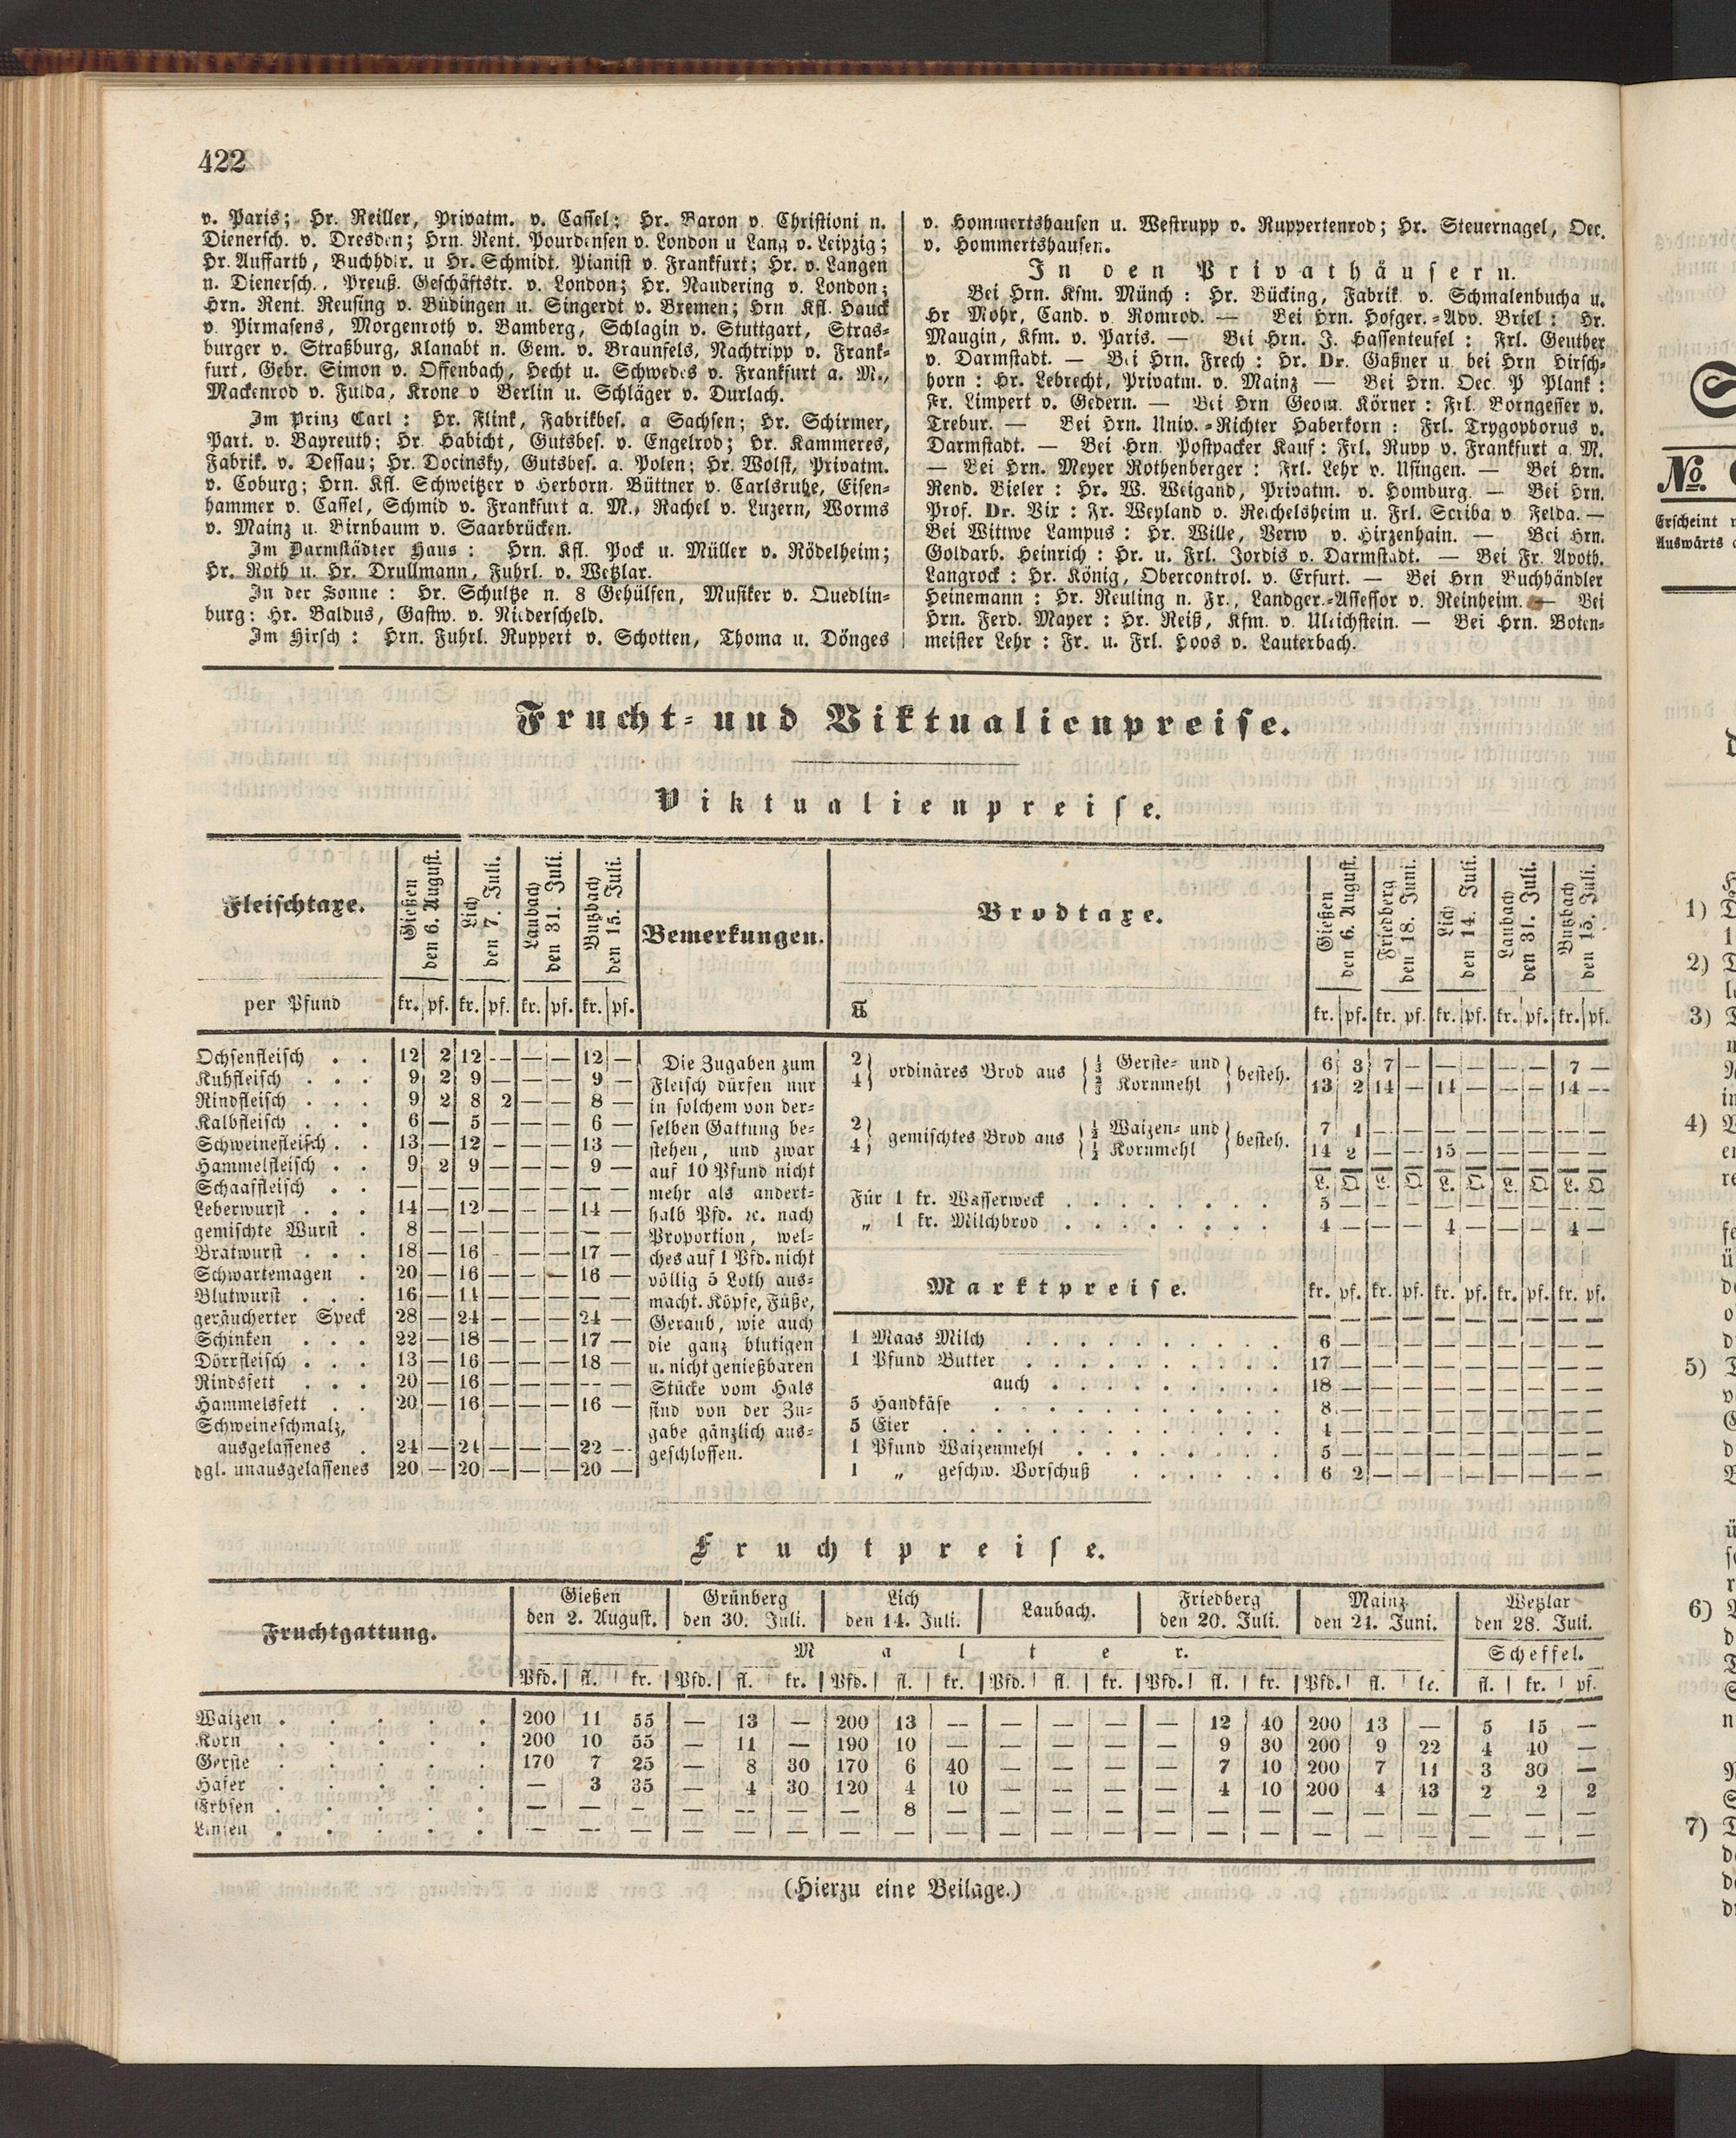 422
v. Paris; Hr. Reiller, Privatm. v. Cassel; Hr. Baron v. Christioni n.
Dienersch. v. Dresden; Hrn. Rent. Pourdensen v. London u Lang v. Leipzig;
Hr. Auffarth, Buchhdlr. u Hr. Schmidt, Pianist v. Frankfurt; Hr. v. Langen
n. Dienersch., Preuß. Geschäftstr. v. London; Hr. Naudering v. London;
Hrn. Rent. Reusing v. Büdingen u. Singerdt v. Bremen; Hrn. Kfl. Hauck
v. Pirmasens, Morgenroth v. Bamberg, Schlagin v. Stuttgart, Stras-
burger v. Straßburg, Klanabt n. Gem. v. Braunfels, Nachtripp v. Frank-
furt, Gebr. Simon v. Offenbach, Hecht u. Schwedes v. Frankfurt a. M.,
Mackenrod v. Fulda, Krone v Berlin u. Schläger v. Durlach.
Im Prinz Carl : Hr. Flink, Fabrikbes. a Sachsen; Hr. Schirmer,
Part. v. Bayreuth; Hr. Habicht, Gutsbes. v. Engelrod; Hr. Kammeres,
Fabrik. v. Dessau; Hr. Docinsky, Gutsbes. a. Polen; Hr. Wolst, Privatm.
v. Coburg; Hrn. Kfl. Schweitzer v Herborn. Büttner v. Carlsruhe, Eisen-
hammer v. Cassel, Schmid v. Frankfurt a. M., Rachel v. Luzern, Worms
v. Mainz u. Birnbaum v. Saarbrücken.
Im Darmstädter Haus : Hrn. Kfl. Pock u. Müller v. Rödelheim;
Hr. Roth u. Hr. Drullmann, Fuhrl. v. Wetzlar.
In der Sonne : Hr. Schultze n. 8 Gehülfen, Musiker v. Quedlin-
burg; Hr. Baldus, Gastw. v. Niederscheld.
Im Hirsch : Hrn. Fuhrl. Ruppert v. Schotten, Thoma u. Dönges
v. Hommertshausen u. Westrupp v. Ruppertenrod; Hr. Steuernagel, Oec.
v. Hommertshausen.
In den Privathäusern.
Bei Hrn. Kfm. Münch : Hr. Bücking, Fabrik. v. Schmalenbucha u.
Hr Mohr, Cand. v. Romrod. — Bei Hrn. Hofger.-Adv. Briel : Hr.
Maugin, Kfm. v. Paris. — Bei Hrn. J. Hassenteufel : Frl. Geuther
v. Darmstadt. — Bei Hrn. Frech : Hr. Dr. Gaßner u. bei Hrn Hirsch-
horn : Hr. Lebrecht, Privatm. v. Mainz — Bei Hrn. Oec. P Plank :
Fr. Limpert v. Gedern. — Bei Hrn Geom. Körner : Frl. Borngesser v.
Trebur. — Bei Hrn. Univ.-Richter Haberkorn : Frl. Trygophorus v.
Darmstadt. — Bei Hrn. Postpacker Kauf : Frl. Rupp v. Frankfurt a. M.
— Bei Hrn. Meyer Rothenberger : Frl. Lehr v. Usingen. — Bei Hrn.
Rend. Bieler : Hr. W. Weigand, Privatm. v. Homburg. — Bei Hrn.
Prof. Dr. Vix : Fr. Weyland v. Reichelsheim u. Frl. Scriba v. Felda. —
Bei Wittwe Lampus : Hr. Wille, Verw v. Hirzenhain. — Bei Hrn.
Goldarb. Heinrich : Hr. u. Frl. Jordis v. Darmstadt. — Bei Fr. Apoth.
Langrock : Hr. König, Obercontrol. v. Erfurt. — Bei Hrn Buchhändler
Heinemann : Hr. Reuling n. Fr., Landger.-Assessor v. Reinheim. — Bei
Hrn. Ferd. Mayer : Hr. Reiß, Kfm. v. Ulrichstein. — Bei Hrn. Boten-
meister Lehr : Fr. u. Frl. Hoos v. Lauterbach.
Frucht- und Viktualienpreise.
Viktualienpreise.
Fleischtaxe. Gießen den 6. August. Lich den 7. Juli. Laubach den 31. Juli. Butzbach den 15. Juli. Bemerkungen.
per Pfund kr. pf. kr. pf. kr. pf. kr. pf.
Ochsenfleisch . . 12 2 12 — — — 12 —
Kuhfleisch . . . 9 2 9 — — — 9 —
Rindfleisch . . . 9 2 8 2 — — 8 —
Kalbfleisch . . . 6 — 5 — — — 6 —
Schweinefleisch . . 13 — 12 — — — 13 —
Hammelfleisch . . 9 2 9 — — — 9 —
Schaaffleisch . . — — — — — — — —
Leberwurst . . . 14 — 12 — — — 14 —
gemischte Wurst . 8 — — — — — — —
Bratwurst . . . 18 — 16 — — — 17 —
Schwartemagen . 20 — 16 — — — 16 —
Blutwurst . . . 16 — 11 — — — — —
geräucherter Speck 28 — 24 — — — 24 —
Schinken . . . 22 — 18 — — — 17 —
Dörrfleisch . . . 13 — 16 — — — 18 —
Rindsfett . . . 20 — 16 — — — — —
Hammelsfett . . 20 — 16 — — — 16 —
Schweineschmalz,
ausgelassenes . 24 — 24 — — — 22 —
dgl. unausgelassenes 20 — 20 — — — 20 —
Die Zugaben zum
Fleisch dürfen nur
in solchem von der-
selben Gattung be-
stehen, und zwar
auf 10 Pfund nicht
mehr als andert-
halb Pfd. ꝛc. nach
Proportion, wel-
ches auf 1 Pfd. nicht
völlig 5 Loth aus-
macht. Köpfe, Füße,
Geraub, wie auch
die ganz blutigen
u. nicht genießbaren
Stücke vom Hals
sind von der Zu-
gabe gänzlich aus-
geschlossen.
Brodtaxe. Gießen den 6. August. Friedberg den 18. Juni. Lich den 14. Juli. Laubach den 31. Juli. Butzbach den 15. Juli.
℔ kr. pf. kr. pf. kr. pf. kr. pf. kr. pf.
2 ordinäres Brod aus ⅓ Gerste- und besteh. 6 3 7 — — — — — 7 —
4 ⅔ Kornmehl 13 2 14 — 14 — — — 14 —
2 gemischtes Brod aus ½ Waizen- und besteh. 7 1 — — — — — — — —
4 ½ Kornmehl 14 2 — — 15 — — — — —
L. Q. L. Q. L. Q. L. Q. L. Q.
Für 1 kr. Wasserweck . . . . . . . 5 — — — — — — — — —
„ 1 kr. Milchbrod . . . . . . . 4 — — — 4 — — — 4 —
Marktpreise. kr. pf. kr. pf. kr. pf. kr. pf. kr. pf.
1 Maas Milch . . . . . . . . . 6 — — — — — — — — —
1 Pfund Butter . . . . . . . . . 17 — — — — — — — — —
auch . . . . . . . . 18 — — — — — — — — —
5 Handkäse . . . . . . . . . 8 — — — — — — — — —
5 Eier . . . . . . . . . . . 4 — — — — — — — — —
1 Pfund Waizenmehl . . . . . . . 5 — — — — — — — — —
1 „ geschw. Vorschuß . . . . . . 6 2 — — — — — — — —
Fruchtpreise.
Fruchtgattung. Gießen den 2. August. Grünberg den 30. Juli. Lich den 14. Juli. Laubach. Friedberg den 20. Juli. Mainz den 24. Juni. Wetzlar den 28. Juli.
Malter. Scheffel.
Pfd. fl. kr. Pfd. fl. kr. Pfd. fl. kr. Pfd. fl. kr. Pfd. fl. kr. Pfd. fl. kr. fl. kr. pf.
Waizen . . . . . 200 11 55 — 13 — 200 13 — — — — — 12 40 200 13 — 5 15 —
Korn . . . . . 200 10 55 — 11 — 190 10 — — — — — 9 30 200 9 22 4 40 —
Gerste . . . . . 170 7 25 — 8 30 170 6 40 — — — — 7 10 200 7 11 3 30 —
Hafer . . . . . — 3 35 — 4 30 120 4 10 — — — — 4 10 200 4 43 2 2 2
Erbsen . . . . . — — — — — — — 8 — — — — — — — — — — — — —
Linsen . . . . . — — — — — — — — — — — — — — — — — — — — —
(Hierzu eine Beilage.)
No.
Erscheint
Auswärts
1)
2)
3)
4)
5)
6)
7)